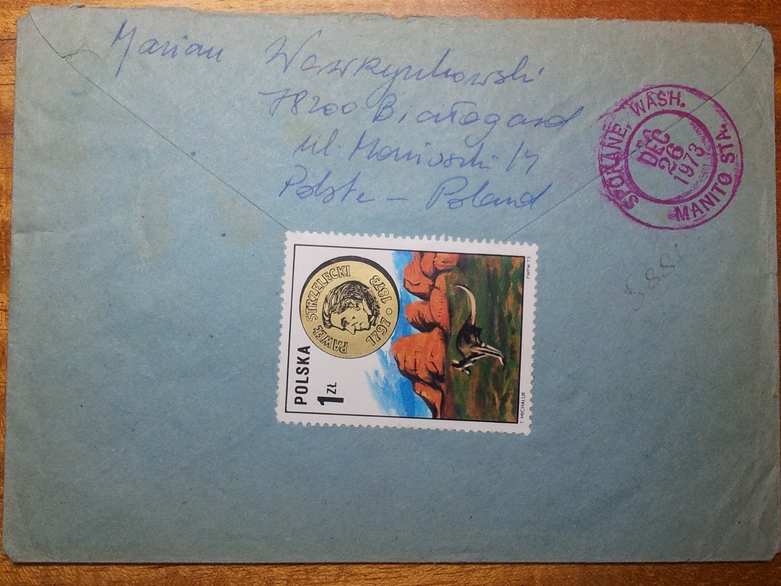 Marian Wawrzynkowski
78200 Białogard
ul. Moniuszki 14
Polska – Poland
SPOKANE, WASH.
DEC
26
1973
MANITO STA.
PAWEŁ STRZELECKI
1797 • 1873
POLSKA
1 ZŁ
T. MICHALUK